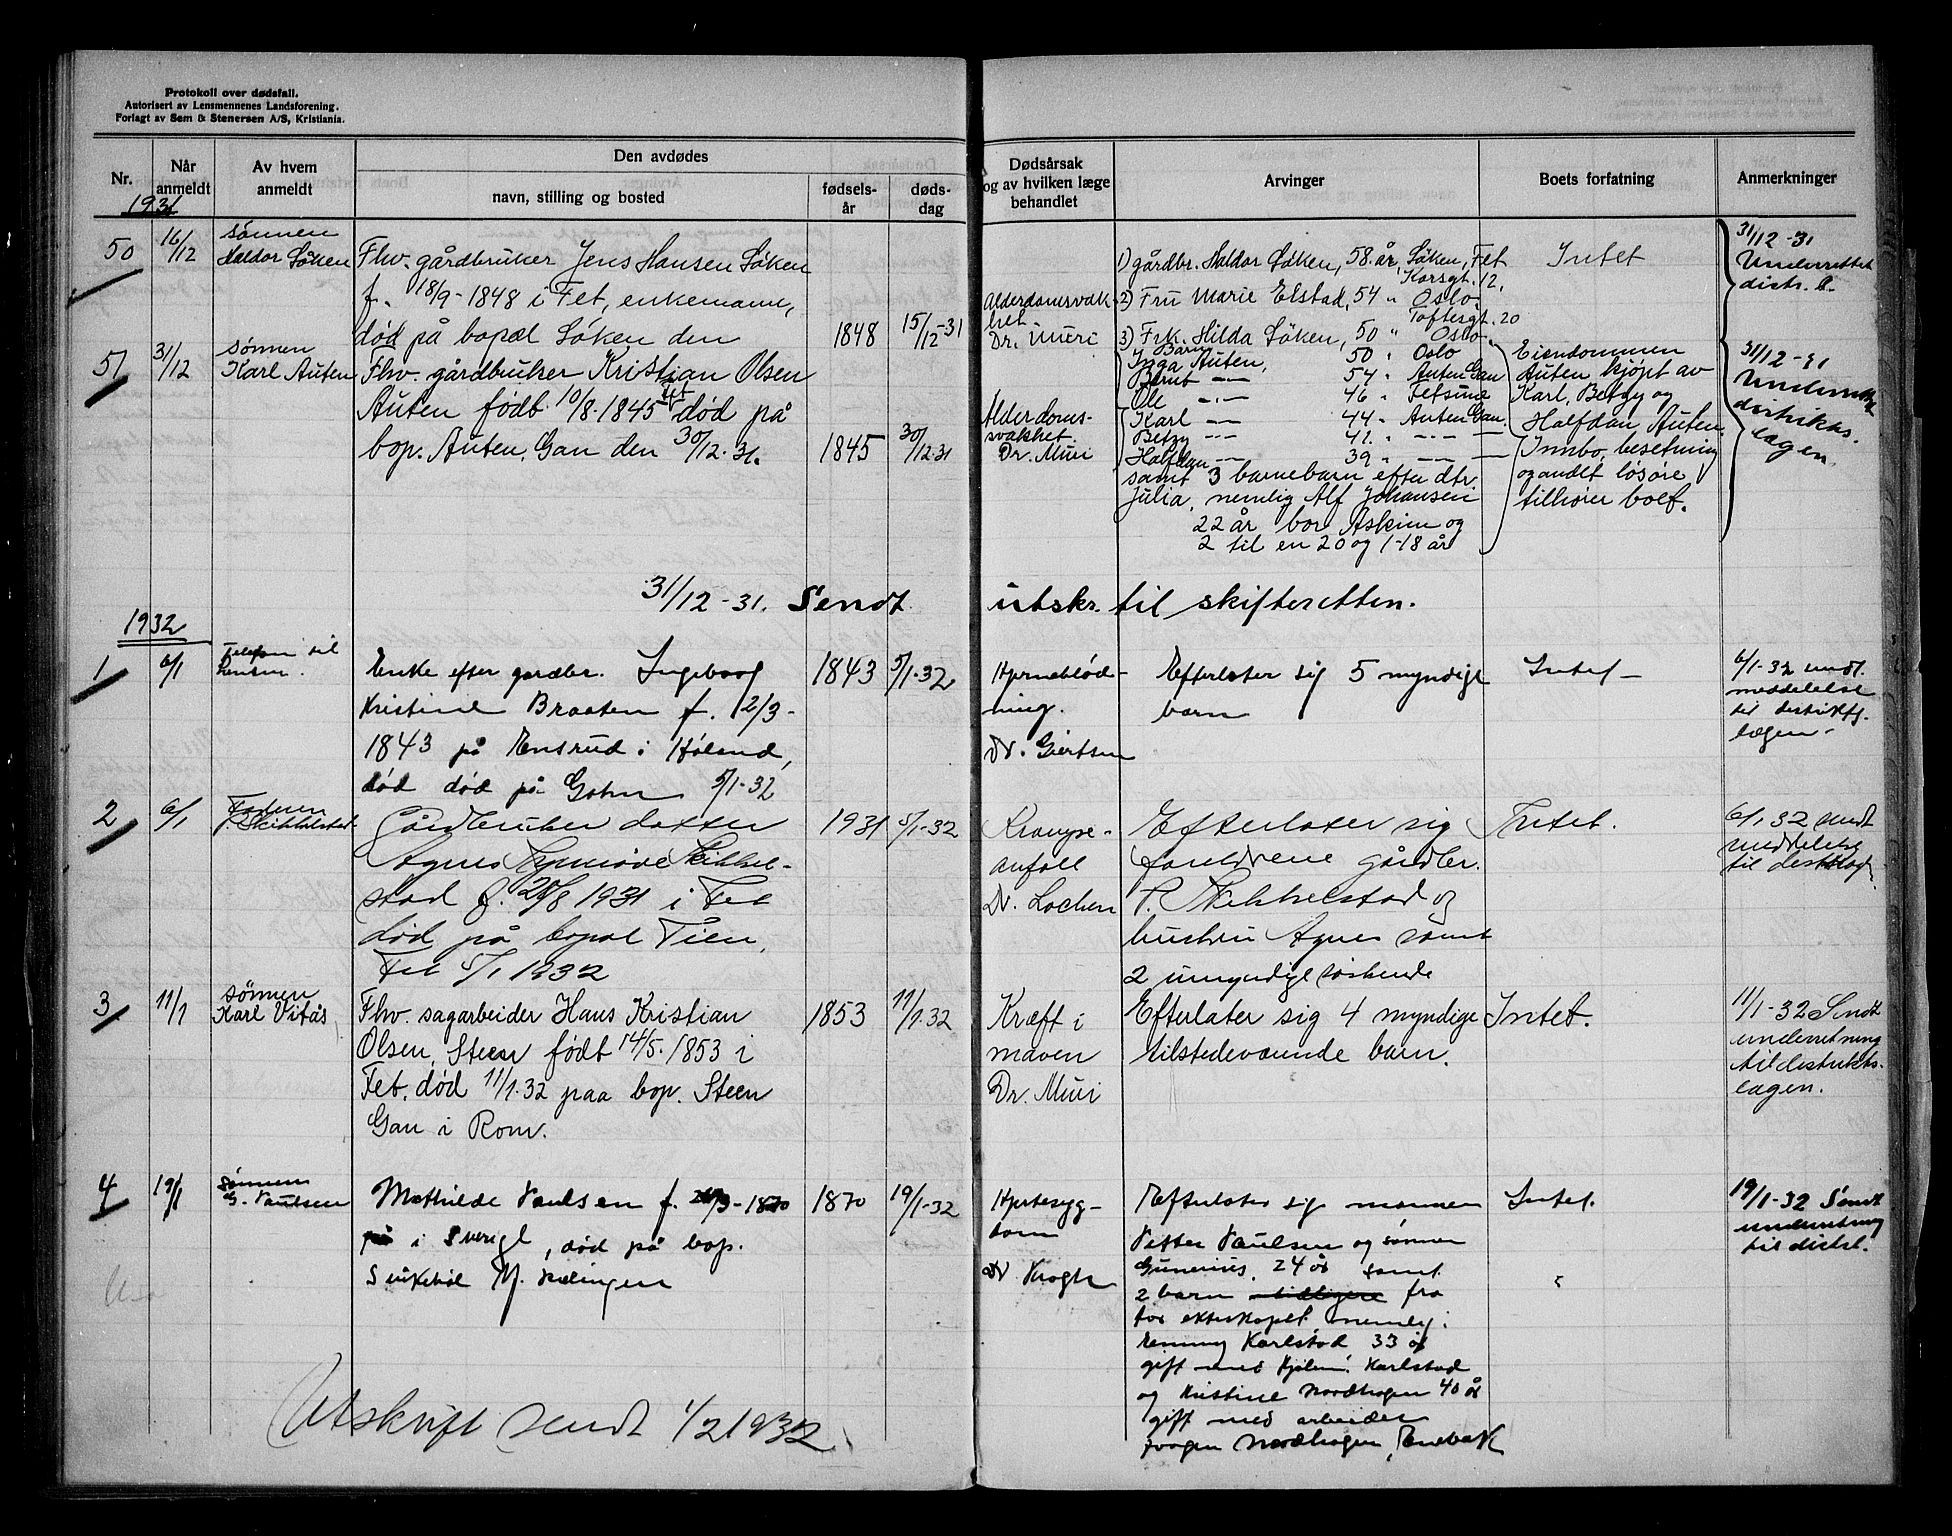 Protokoll over dødsfall.
Autorisert av Lensmennenes Landsforening.
Forlagt av Sem & Stenersen A/S, Kristiania.
Nr.
Når anmeldt
Av hvem anmeldt
Den avdødes
navn, stilling og bosted
fødsels-år
døds-dag
Dødsårsak og av hvilken læge behandlet
Arvinger
Boets forfatning
Anmerkninger
1931
50
16/12
sønnen
Haldor Löken
Fhv. gårdbruker Jens Hansen Löken
f. 18/9-1848 i Fet, enkemann,
död på bopæl Löken den
1848
15/12-31
Alderdomsvak-
het
Dr. Muri
1) gårdbr. Haldor Løken, 58 år, Löken, Fet
Korsgt. 12.
2) Fru Marie Elstad, 54 " Oslo.
Toftesgt. 20
3) Frk. Hilda Löken, 50 " Oslo.
Intet
31/12-31
Underrettet
distr. l.
51
31/12
sønnen
Karl Auten
Fhv. gårdbruker Kristian Olsen
Auten födt 10/8-1845 Fet död på
bop. Auten, Gan den 30/12.31.
1845
30/12.31
Alderdoms-
svakhet.
Dr. Muri
Barn
Inga Auten, 50 " Oslo
Bernt —"— 54 " Auten Gan
Ole —"— 46 " Fetsund
Karl —"— 44 " Auten Gan.
Betzy —"— 41. " —"— —
Halfdan —"— 39 " —"— —
samt 3 barnebarn efter dtr.
Julia, nemlig Alf Johansen
22 år bor Askim og
2 til en 20 og 1-18 år
Eiendommen
Auten kjöpt av
Karl, Betzy og
Halfdan Auten.
Innbo, besetning
og andet lösöre
tilhörer boet.
31/12-31
Underrettet
distrikts-
lægen.
31/12-31. Sendt utskr. til skifteretten.
1932
1
6/1
Telefon til
Lensm.
Enke efter gardbr. Ingeborg
Kristine Braaten f. 12/3-
1843 på Ensrud i Höland,
död död på Gohn 5/1-32
1843
5/1-32
Hjerneblöd-
ning.
Dr. Giertsen
Efterlater sig 5 myndige
barn
Intet —
6/1-32 undt.
meddelelse
til distriktslægen-
2
6/1
Faderen
P. Skibbelstad.
Gårdbruker datter
Agnes Synnöve Skibbel-
stad f. 28/8 1931 i Fet
död på bopæl Tien,
Fet 5/1 1932
1931
5/1-32
Krampe-
anfall
Dr. Lochen
Efterlater sig
foreldrene gårdbr.
P. Skibbelstad og
hustru Agnes samt
2 umyndige söskende
Intet.
6/1 32 sendt
meddelelse
til distr.læg.
3
11/1
sønnen
Karl Vitås
Fhv. sagarbeider Hans Kristian
Olsen, Steen födt 14/5. 1853 i
Fet, död 11/1.32 paa bop. Steen
Gan i Rom.
1853
11/1.32
Kræft i
maven
Dr. Muri
Efterlater sig 4 myndige
tilstedeværende barn.
Intet.
11/1-32 Sendt
underretning
til distrikts-
lægen.
4
19/1
Sønnen
G. Paulsen
Mathilde Paulsen f. /3-1870
i Sverige, död på bop.
1870
19/1-32
Hjertesyg-
dom
Dr. Krogh
Efterlater sig mannen
Petter Paulsen og sönnen
Gunerius, 24 år samt
2 barn tidligere fra
för ekteskapet nemlig:
Henny Karlstad 33 år
gift med Hjalm. Karlstad
og Kristine Nordhagen 40 år
gift med arbeider
Nordhagen, Enebakk
Intet.
19/1-32 Sendt
underretning
til distrl.
Utskrift sendt 1/2 1932